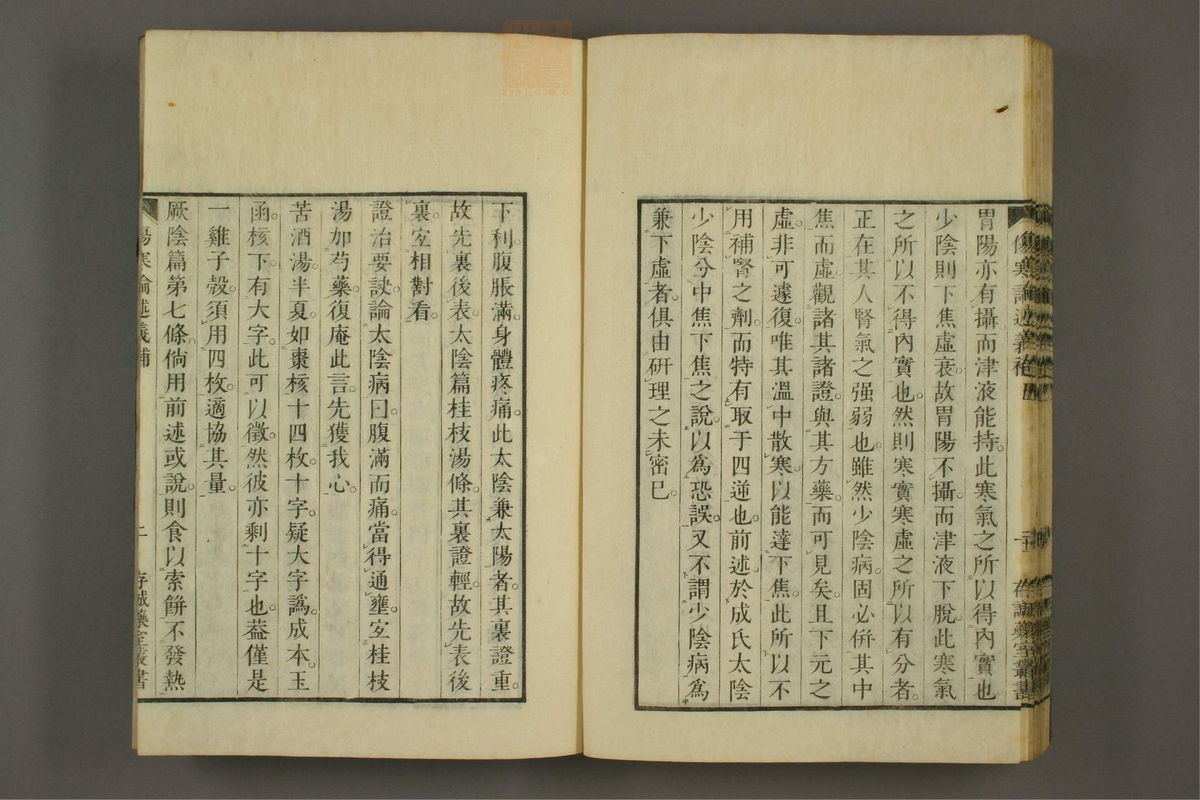 胃陽亦有攝而津液能持此寒氣之所以得內實也
少陰則下焦虛衰故胃陽不攝而津液下脫此寒氣
之所以不得內實也然則寒實寒虛之所以有分者
正在其人腎氣之强弱也雖然少陰病固必併其中
焦而虛觀諸其諸證與其方藥而可見矣且下元之
虛非可遽復唯其溫中散寒以能達下焦此所以不
用補腎之劑而特有取于四逆也前述於成氏太陰
少陰分中焦下焦之說以爲恐誤又不謂少陰病爲
兼下虛者俱由硏理之未密已
下利腹脹滿身體疼痛此太陰兼太陽者其裏證重
故先裏後表太陰篇桂枝湯條其裏證輕故先表後
裏宜相對看
證治要訣論太陰病曰腹滿而痛當得通壅宜桂枝
湯加芍藥復庵此言先獲我心
苦酒湯半夏如棗核十四枚十字疑大字譌成本玉
函核下有大字此可以徵然彼亦剩十字也葢僅是
一雞子殼須用四枚適協其量
厥陰篇第七條倘用前述或說則食以索餅不發熱
傷寒論述義補
二
存誠藥室叢書